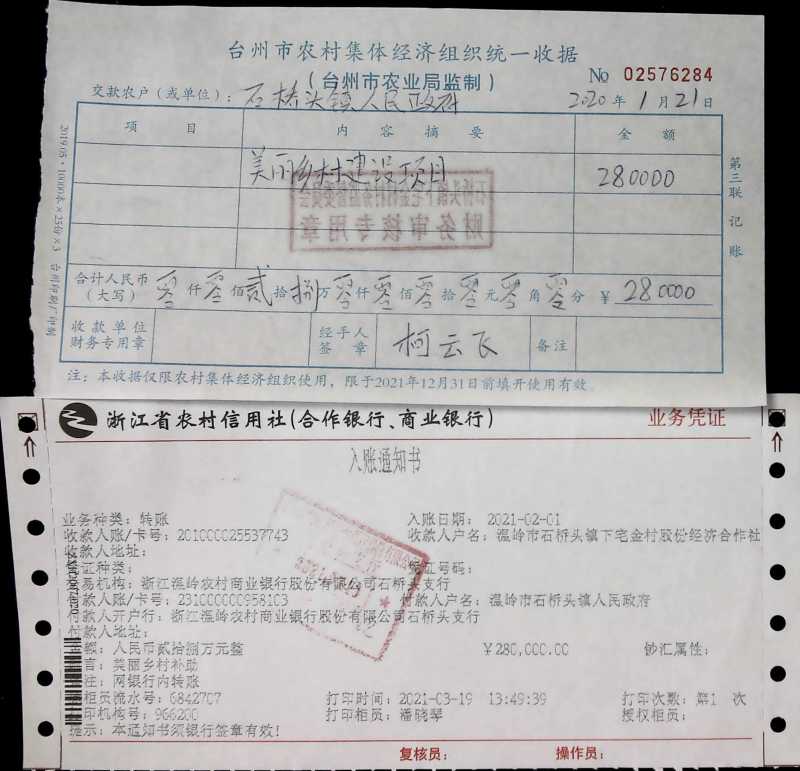 台州市农村集体经济组织统一收据
(台州市农业局监制)
No 02576284
交款农户（或单位）：石桥头镇人民政府 2020年1月21日
项目 内容摘要 金额
美丽乡村建设项目 280000
财务审核专用章
合计人民币（大写） 零仟零佰贰拾捌万零仟零佰零拾零元零角零分 ￥280000
收款单位财务专用章 经手人签章 柯云飞 备注
注：本收据仅限农村集体经济组织使用，限于2021年12月31日前填开使用有效。
第三联 记账
2019.05·10000本×25份×3 台州印刷厂印制
浙江省农村信用社(合作银行、商业银行) 业务凭证
入账通知书
业务种类：转账 入账日期：2021-02-01
收款人账/卡号：201000025537743 收款人户名：温岭市石桥头镇下宅金村股份经济合作社
收款人地址：
凭证种类： 凭证号码：
交易机构：浙江温岭农村商业银行股份有限公司石桥头支行
付款人账/卡号：231000000958103 付款人户名：温岭市石桥头镇人民政府
付款人开户行：浙江温岭农村商业银行股份有限公司石桥头支行
付款人地址：
金额：人民币贰拾捌万元整 ￥280,000.00 钞汇属性：
附言：美丽乡村补助
备注：网银行内转账
柜员流水号：6842707 打印时间：2021-03-19 13:49:39 打印次数：第1 次
打印机构号：966200 打印柜员：潘晓琴 授权柜员：
提示：本通知书须银行签章有效！
复核员： 操作员：